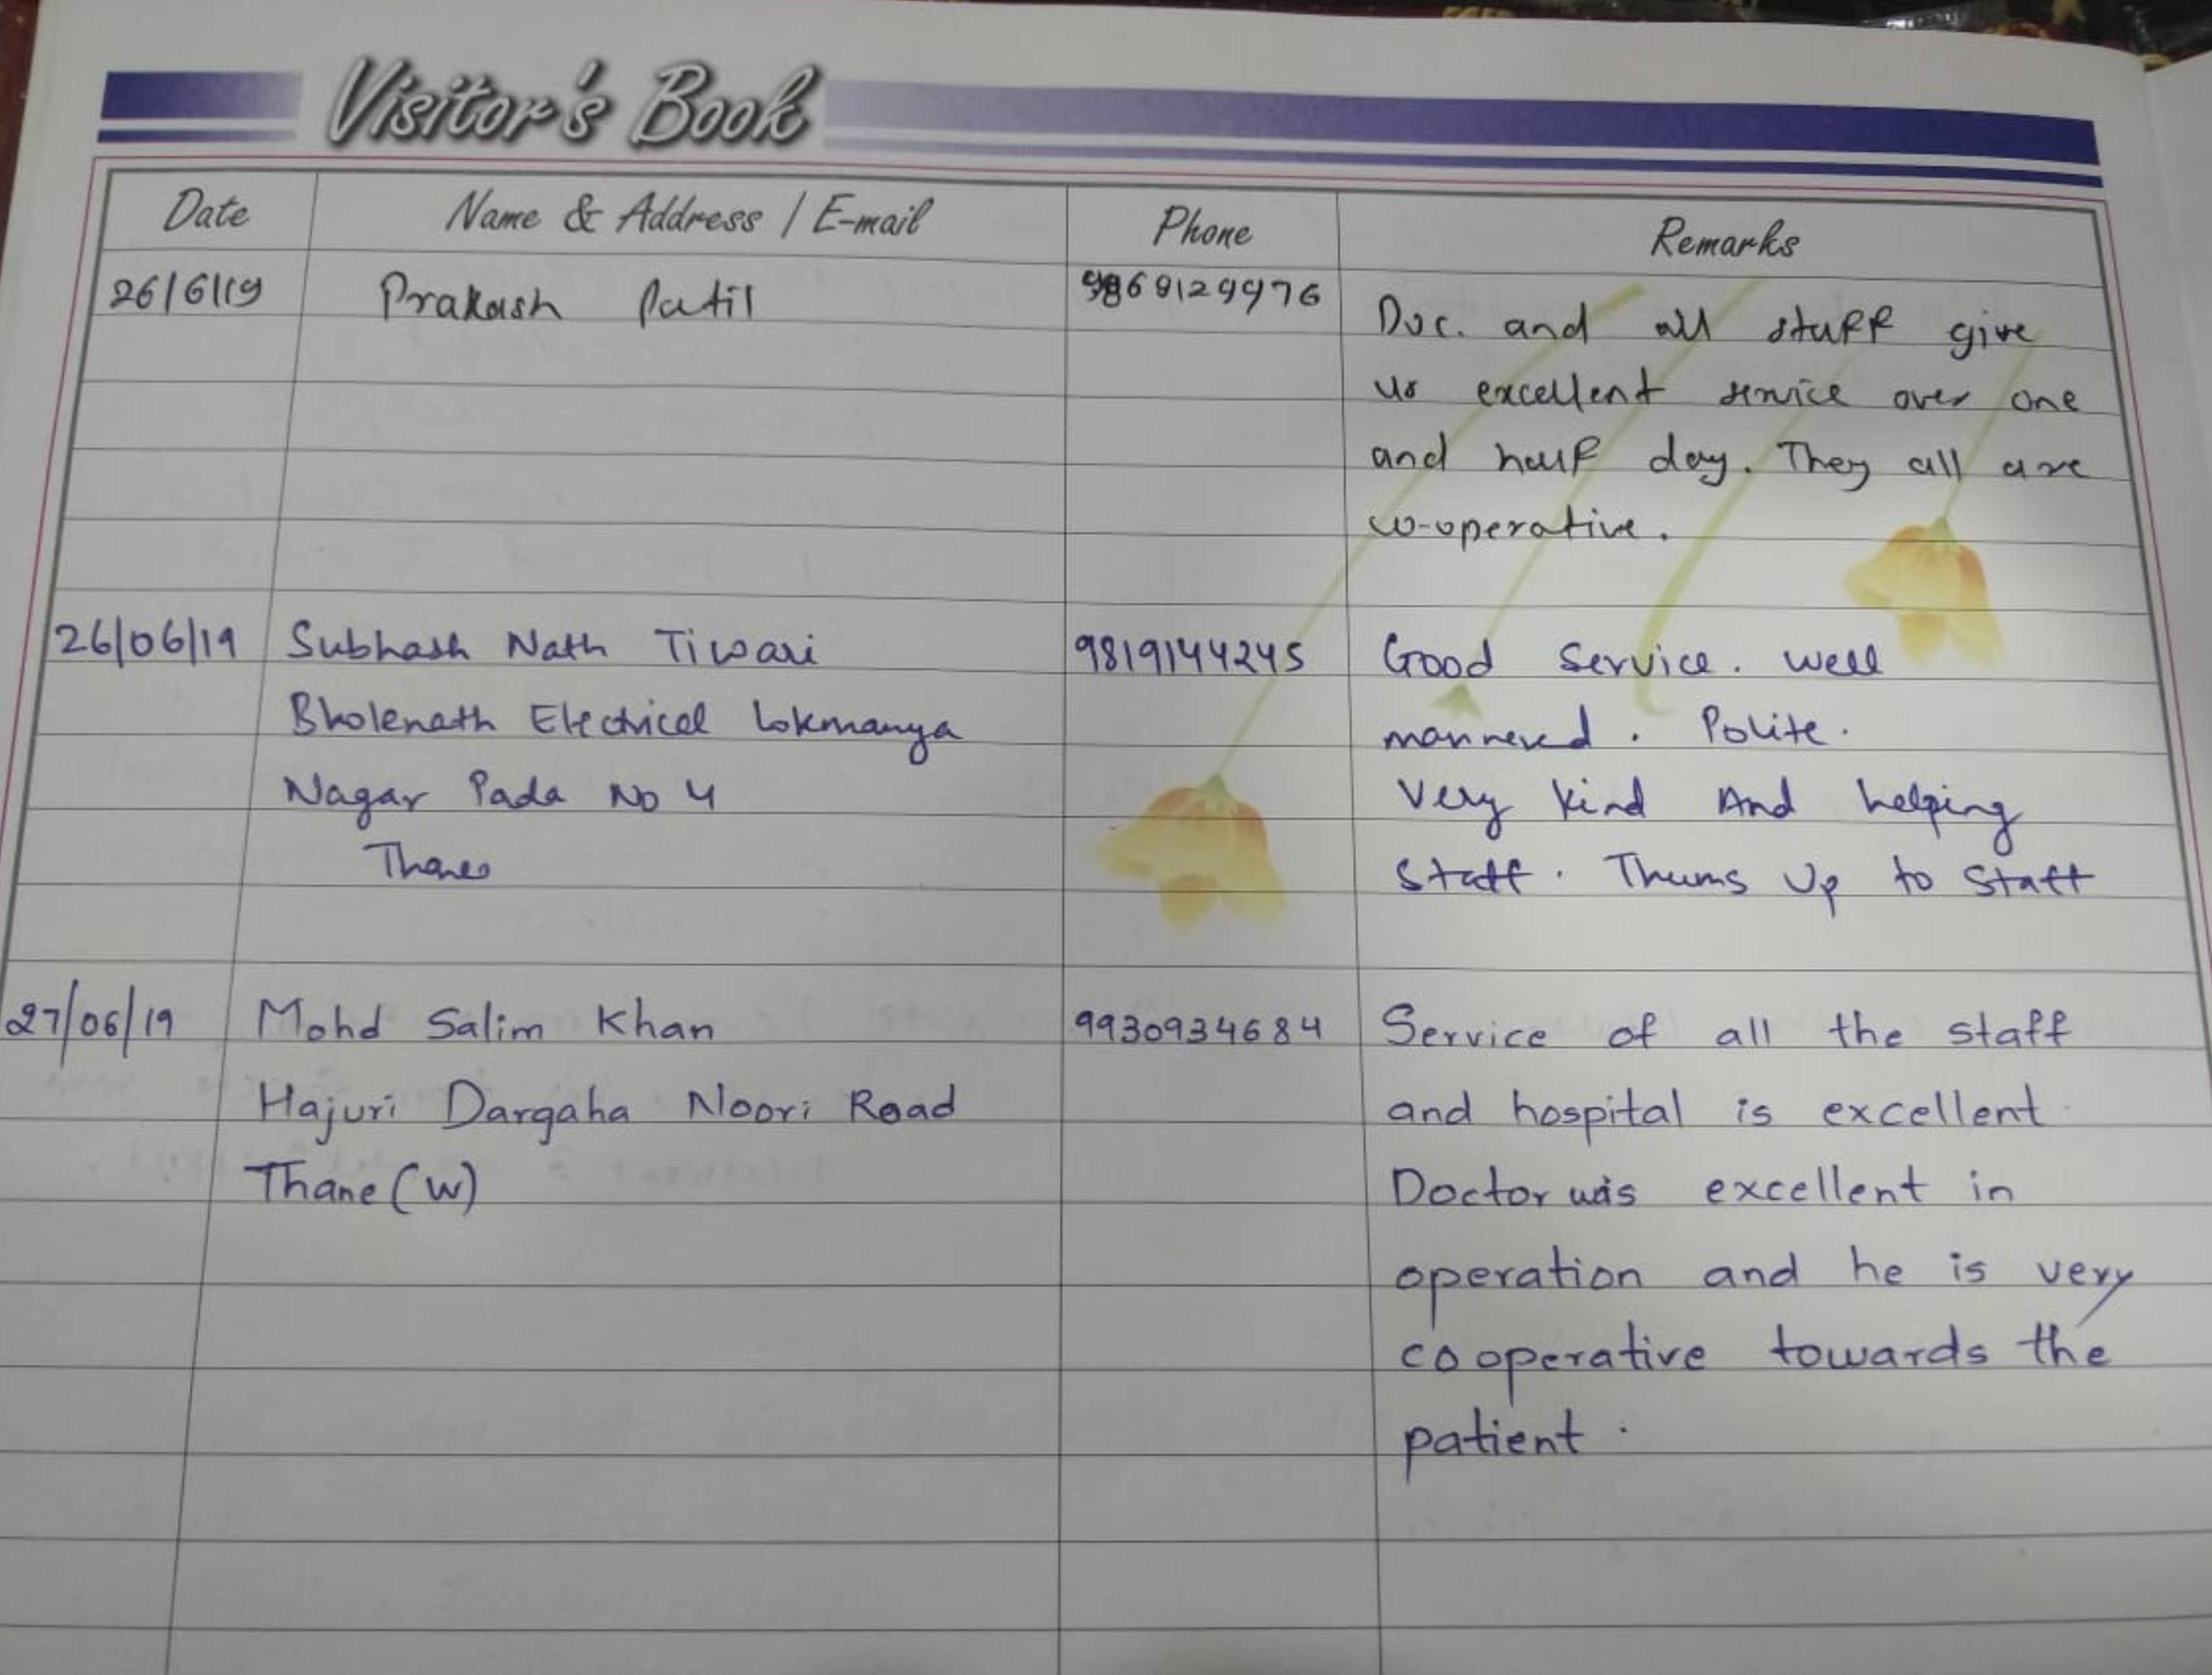 Visitor's Book
Date Name & Address / E-mail Phone Remarks
26/6/19 Prakash Patil 9869129976
Doc. and all staff give
us excellent service over one
and half day. They all are
co-operative.
26/06/19 Subhash Nath Tiwari 9819144245 Good Service. Well
Bholenath Electrical Lokmanya mannered. Polite.
Nagar Pada No 4 Very kind And helping
Thane Staff. Thums Up to Staff
27/06/19 Mohd Salim Khan 9930934684 Service of all the staff
Hajuri Dargaha Noori Road and hospital is excellent
Thane (W) Doctor was excellent in
operation and he is very
cooperative towards the
patient.